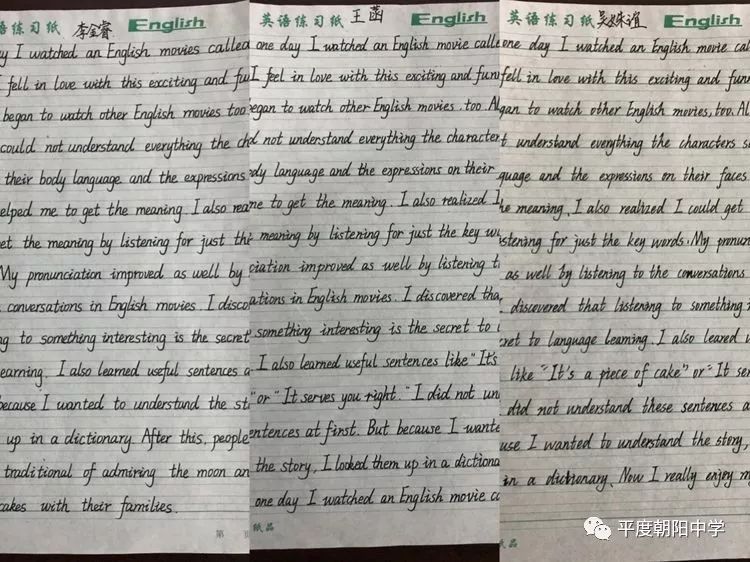 语练习纸 李金睿 English
y I watched an English movies called
fell in love with this exciting and fu
began to watch other English movies too
could not understand everything the ch
their body language and the expressions
elped me to get the meaning. I also rea
et the meaning by listening for just the
My pronunciation improved as well by
conversations in English movies. I disco
ng to something interesting is the secret
earning. I also learned useful sentences a
because I wanted to understand the st
up in a dictionary. After this, people
traditional of admiring the moon an
cakes with their families.
第
英语练习纸 王菡 English
one day I watched an English movie calle
I feel in love with this exciting and funn
egan to watch other English movies, too. Al
d not understand everything the character
dy language and the expressions on their
me to get the meaning. I also realized I
meaning by listening for just the key wo
ciation improved as well by listening t
ations in English movies. I discovered tha
something interesting is the secret to l
I also learned useful sentences like "It's
" or "It serves you right." I did not un
entences at first. But because I wante
the story, I looked them up in a dictiona
one day I watched an English movie ca
纸品
英语练习纸 吴姝谊 English
one day I watched an English movie cal
fell in love with this exciting and funn
gan to watch other English movies, too. Al
t understand everything the characters s
guage and the expressions on their faces
he meaning. I also realized I could get
stening for just the key words. My pronun
as well by listening to the conversations
discovered that listening to something i
cret to language learning. I also leared u
like "It's a piece of cake" or "It ser
did not understand these sentences a
use I wanted to understand the story,
in a dictionary. Now I really enjoy m
品
平度朝阳中学